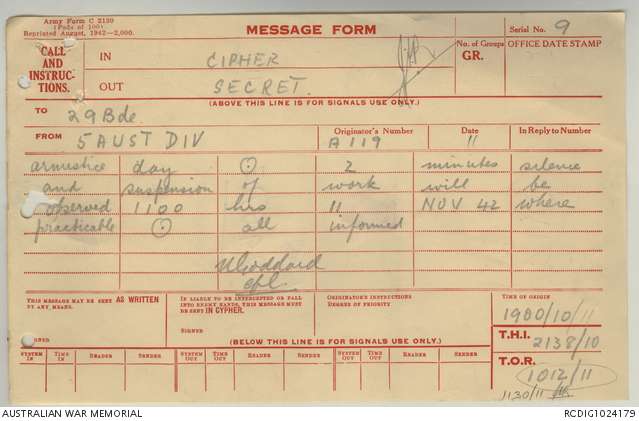 Army Form C 2130
(Pads of 100)
Reprinted August, 1942—2,000.
MESSAGE FORM
Serial No. 9
CALL AND INSTRUC-TIONS.
IN CIPHER
OUT SECRET.
No. of Groups GR.
OFFICE DATE STAMP
(ABOVE THIS LINE IS FOR SIGNALS USE ONLY.)
TO 29 Bde.
FROM 5 AUST DIV
Originator's Number A119
Date 11
In Reply to Number
armistice day ⊙ 2 minutes silence
and suspension of work will be
observed 1100 hrs 11 NOV 42 where
practicable ⊙ all informed
NGoddard
Cpl.
THIS MESSAGE MAY BE SENT AS WRITTEN BY ANY MEANS.
IF LIABLE TO BE INTERCEPTED OR FALL INTO ENEMY HANDS, THIS MESSAGE MUST BE SENT IN CIPHER.
ORIGINATOR'S INSTRUCTIONS
DEGREE OF PRIORITY
TIME OF ORIGIN
1900/10/11
SIGNED
SIGNED
(BELOW THIS LINE IS FOR SIGNALS USE ONLY.)
T.H.I.
2138/10
SYSTEM IN TIME IN READER SENDER SYSTEM OUT TIME OUT READER SENDER SYSTEM OUT TIME OUT READER SENDER
T.O.R.
1012/11
1130/11
AUSTRALIAN WAR MEMORIAL
RCDIG1024179